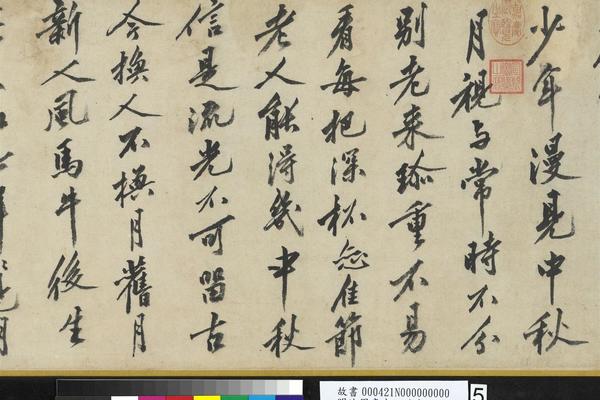 少年漫見中秋
月視与常時不分
別老来珎重不易
看每把深杯佳節
老人能得幾中秋
信是流光不可留古
今換人不換月舊月
新人風馬牛後生
故書 000421N000000000
5